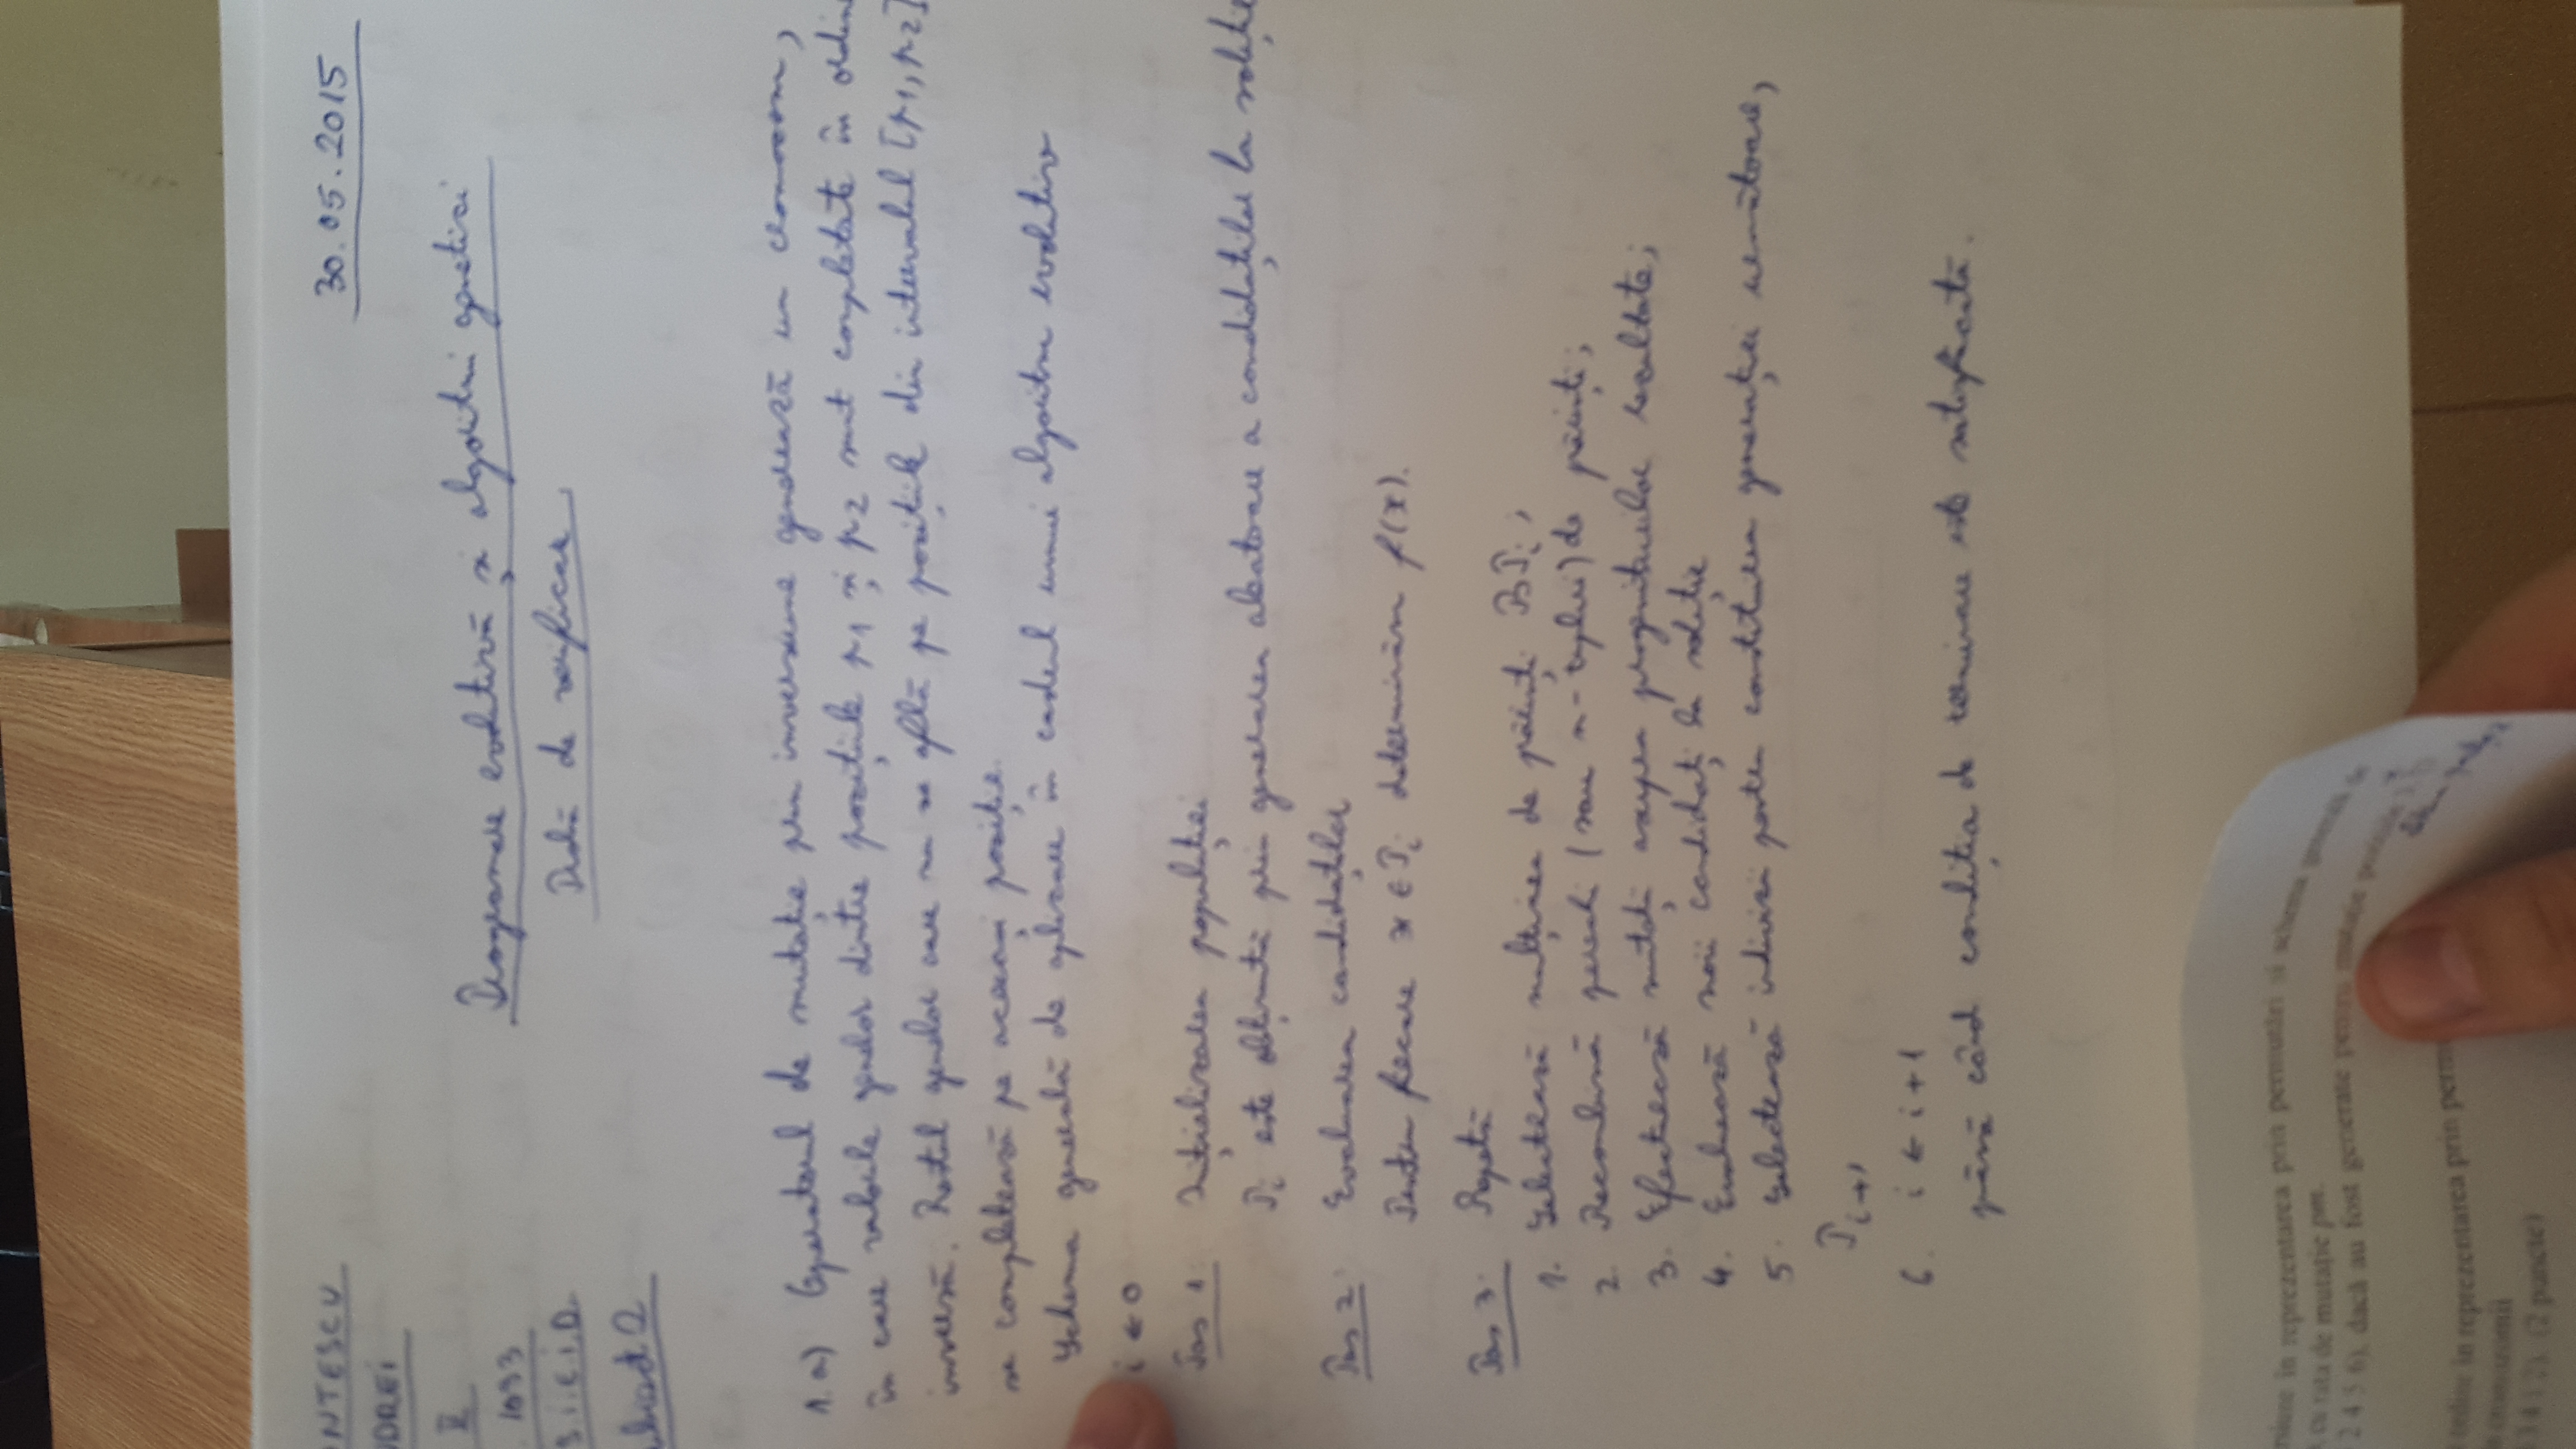 ONTESCU
30.05.2015
NDREI
II
1093
S.I.E.I.D.
Subiect 2
Programare evolutivă și algoritmi genetici
Probă de verificare
1.a) Operatorul de mutație prin inversiune generează un cromozom,
în care valorile genelor dintre pozițiile p1 și p2 sunt completate în ordine
inversă. Restul genelor care nu se află pe pozițiile din intervalul [p1, p2]
se completează pe aceeași poziție.
Schema generală de aplicare în cadrul unui algoritm evolutiv
i ← 0
Pas 1: Inițializarea populației
Pi este obținută prin generarea aleatoare a candidaților la soluție
Pas 2: Evaluarea candidaților
Pentru fiecare x ∈ Pi determinăm f(x).
Pas 3: Repetă
1. Selectează mulțimea de părinți BPi;
2. Recombină perechi (sau n-tupluri) de părinți;
3. Efectuează mutații asupra progeniturilor rezultate;
4. Evaluează noii candidați la soluție
5. Selectează indivizii pentru constituirea generației următoare,
Pi+1
6. i ← i+1
până când condiția de terminare este satisfăcută.
în reprezentarea prin permutări și schema generală de
cu rata de mutație pm.
2 4 5 6), dacă au fost generate pentru mutație pozițiile
ordine în reprezentarea prin
cromozomii
3 4 1 2). (2 puncte)